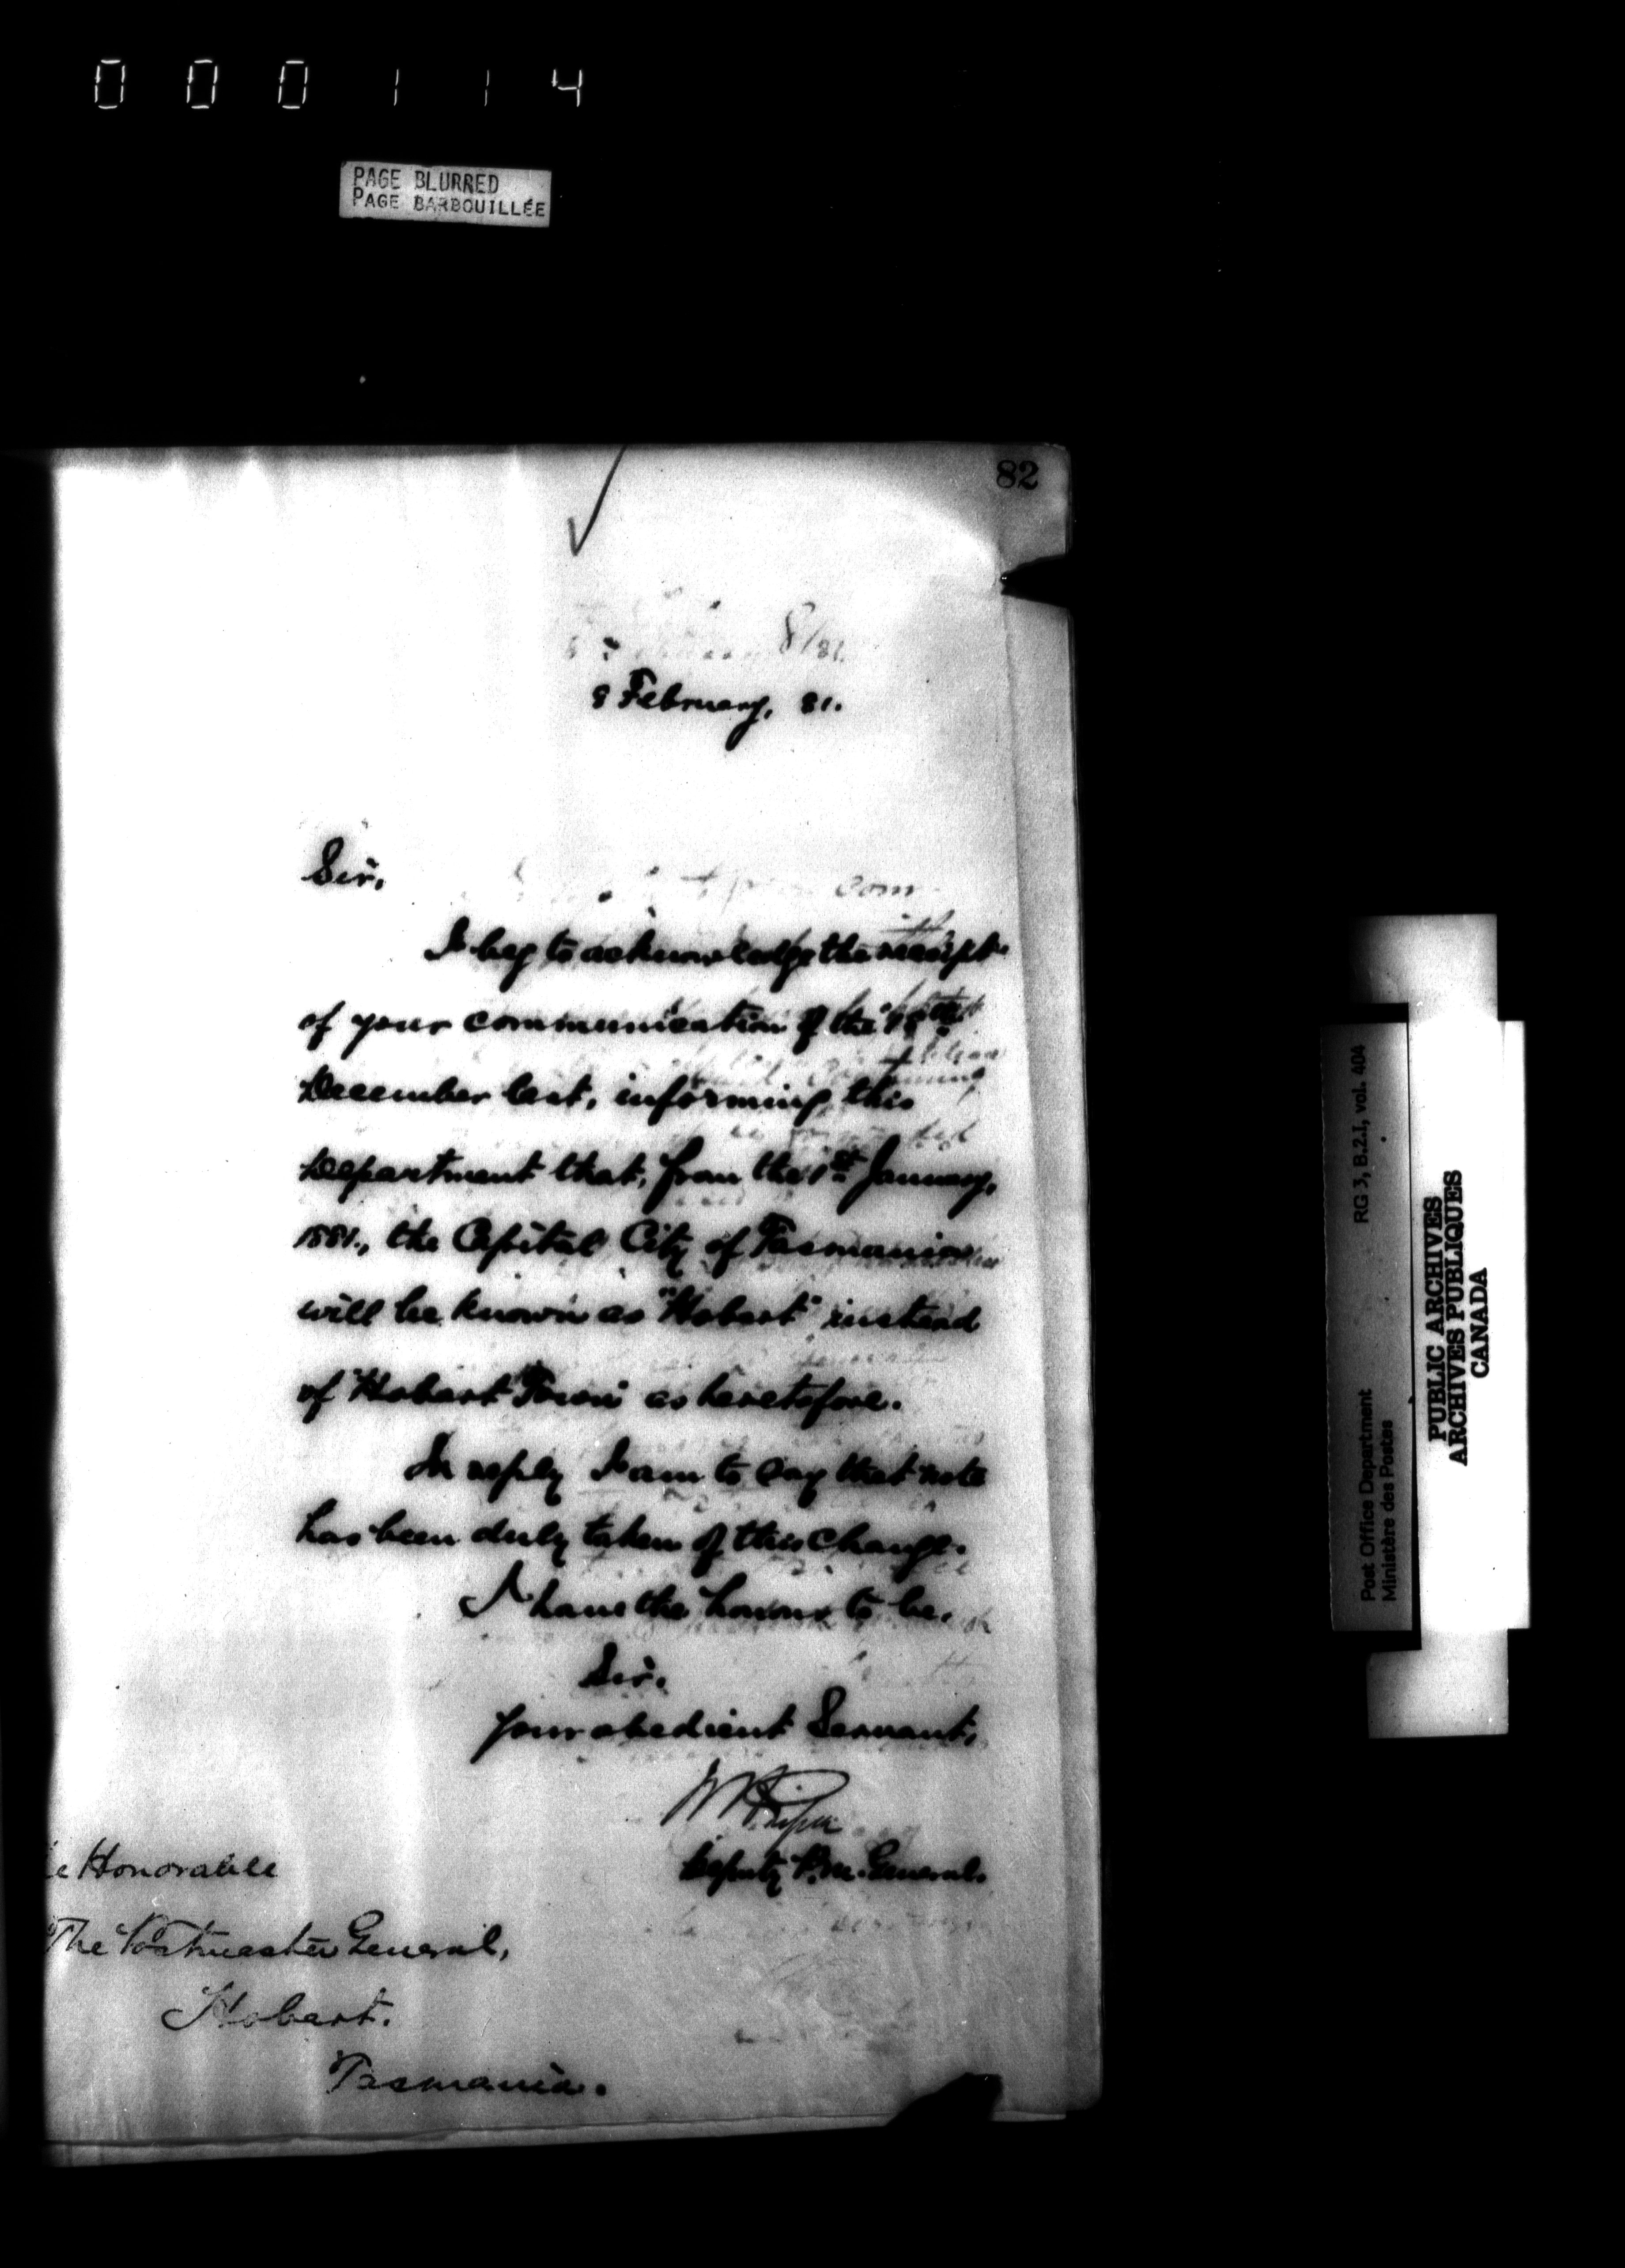 000114
PAGE BLURRED
PAGE BARBOUILLÉE
82
8/81.
9 February, 81.
Sir,
I beg to acknowledge the receipt
of your communication of the
December last, informing this
Department that, from the 1st January,
1881., the Capital City of Tasmania
will be known as "Hobart" instead
of "Hobart Town" as heretofore.
In reply I am to say that note
has been duly taken of this change.
I have the honour to be,
Sir.
Your obedient Servant,
Deputy P.M. General.
Honorable
The Postmaster General,
Hobart.
Tasmania.
Post Office Department
Ministère des Postes
RG 3, B.2.I, vol. 404
PUBLIC ARCHIVES
ARCHIVES PUBLIQUES
CANADA